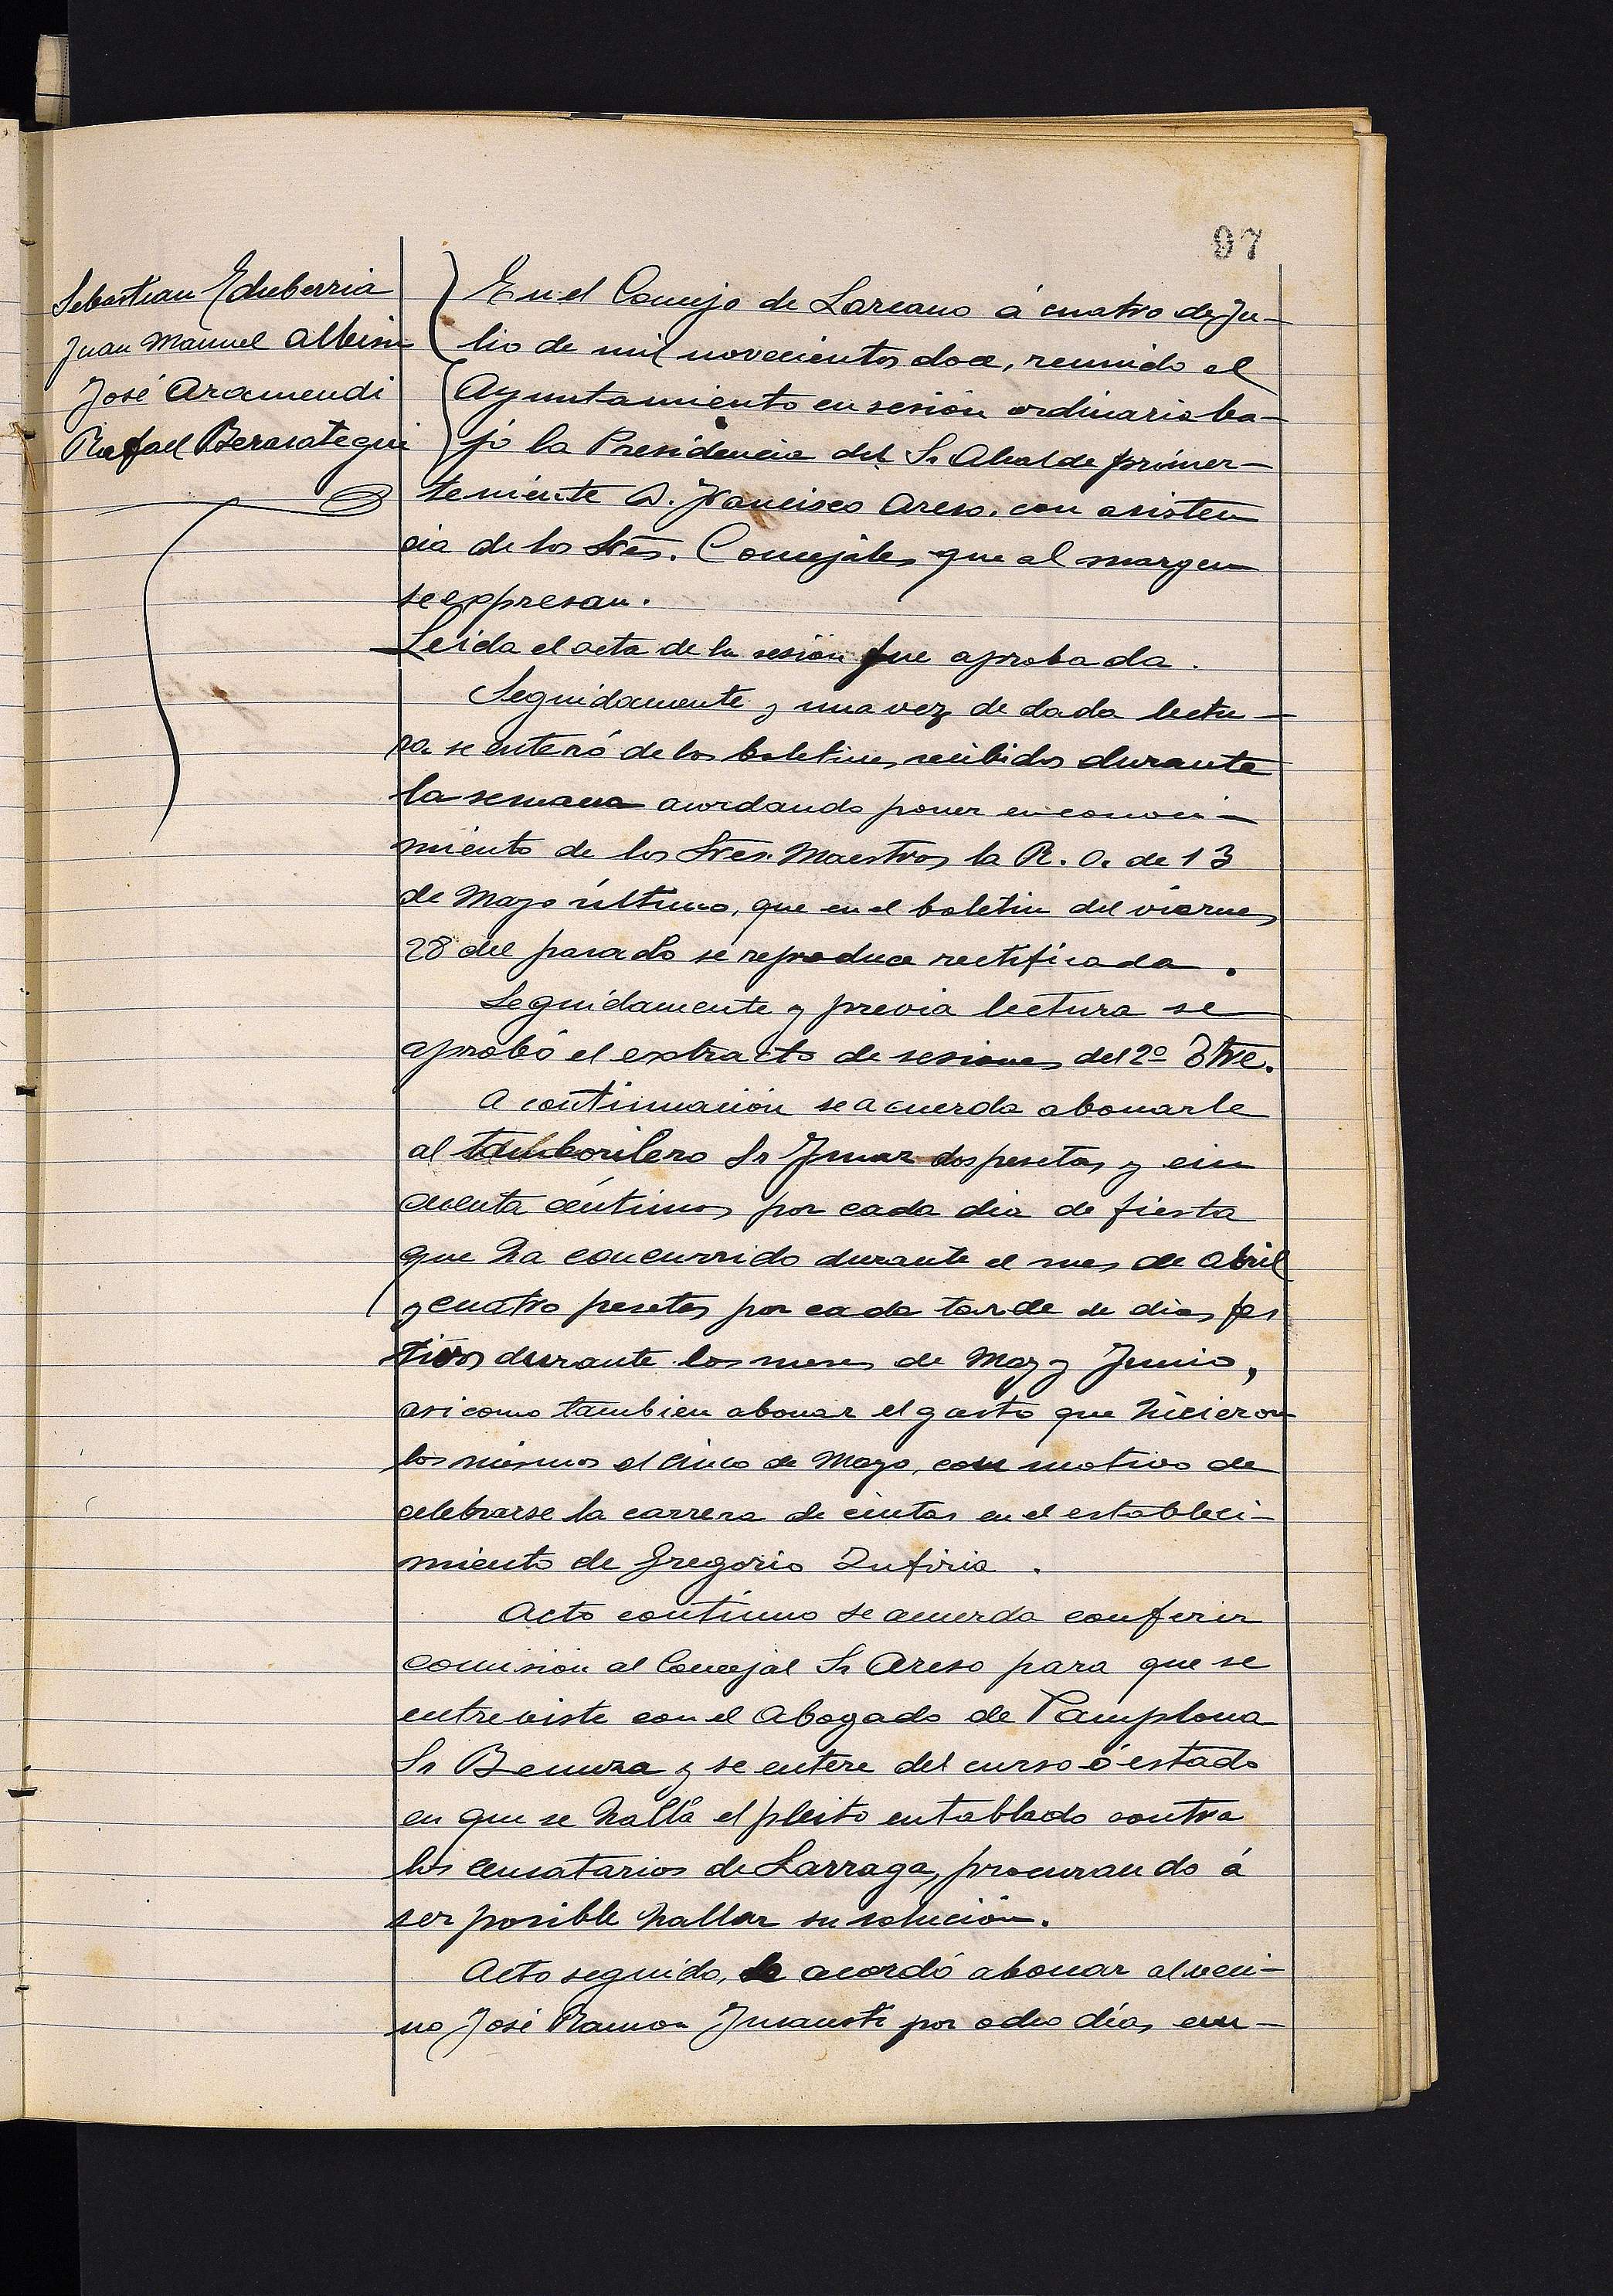 97
Sebastian Echeberria
Juan Manuel Albisu
José Aramendi
Rafael Berasategui
En el Concejo de Lazcano á cuatro de Ju-
lio de mil novecientos doce, reunido el
Ayuntamiento en sesión ordinaria ba-
jo la Presidencia del Sr Alcalde primer-
teniente D. Francisco Areso. con asisten
cia de los Sres. Concejales que al margen
se expresan.
Leida el acta de la sesión fue aprobada.
Seguidamente y una vez de dada lectu-
ra se enteró de los boletines recibidos durante
la semana acordando poner en conoci-
miento de los Sres. Maestros la R. O. de 13
de Mayo último, que en el boletin del viernes
28 del pasado se reproduce rectificada.
Seguidamente y previa lectura se
aprobó el extracto de sesiones del 2º Ttre.
A continuación se acuerda abonarle
al tamborilero Sr dos pesetas y cin
cuenta céntimos por cada dia de fiesta
que ha concurrido durante el mes de Abril
y cuatro pesetas por cada tarde de dias fes
tivos durante los meses de May y Junio,
asi como tambien abonar el gasto que hicieron
los mismos el cinco de Mayo, con motivo de
celebrarse la carrera de cintas en el estableci-
miento de Gregorio Zufiria.
Acto continuo se acuerda conferir
comisión al Concejal Sr Areso para que se
entreviste con el Abogado de Pamplona
Sr y se entere del curso ó estado
en que se halla el pleito entablado contra
los censatarios de Larraga, procurando á
ser posible hallar su solución.
Acto seguido, se acordó abonar al veci-
no José Ramon por ocho días em-